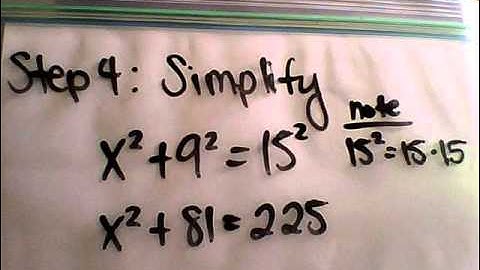 Step 4: Simplify
x² + 9² = 15²
note
15² = 15 · 15
x² + 81 = 225